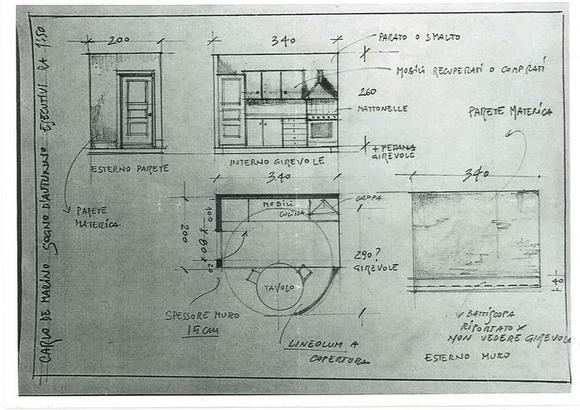 CARLO DE MARINO SOGNO D'AUTUNNO ESECUTIVI RA 1:50
200
340
PARATO O SMALTO
MOBILI RECUPERATI O COMPRATI
260
MATTONELLE
PARETE MATERICA
+ PEDANA
GIREVOLE
ESTERNO PARETE
INTERNO GIREVOLE
340
340
PARETE
MATERICA
MOBILI
CUCINA
CAPPA
100
80
20
200
290?
GIREVOLE
TAVOLO
40
SPESSORE MURO
15 CM
LINEOLUM A
COPERTURA
BATTISCOPA
RIPORTATO X
NON VEDERE GIREVOLE
ESTERNO MURO